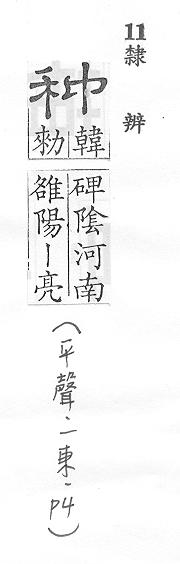 11隸辨
种
韓勑
碑陰河南
雒陽丨亮
(平聲·一東·P4)